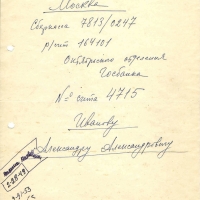 Москва
Сберкасса 7813/0247
р/счет 164101
Октябрьского отделения
Госбанка
№ счета 4715
Иванову
Александру Александровичу